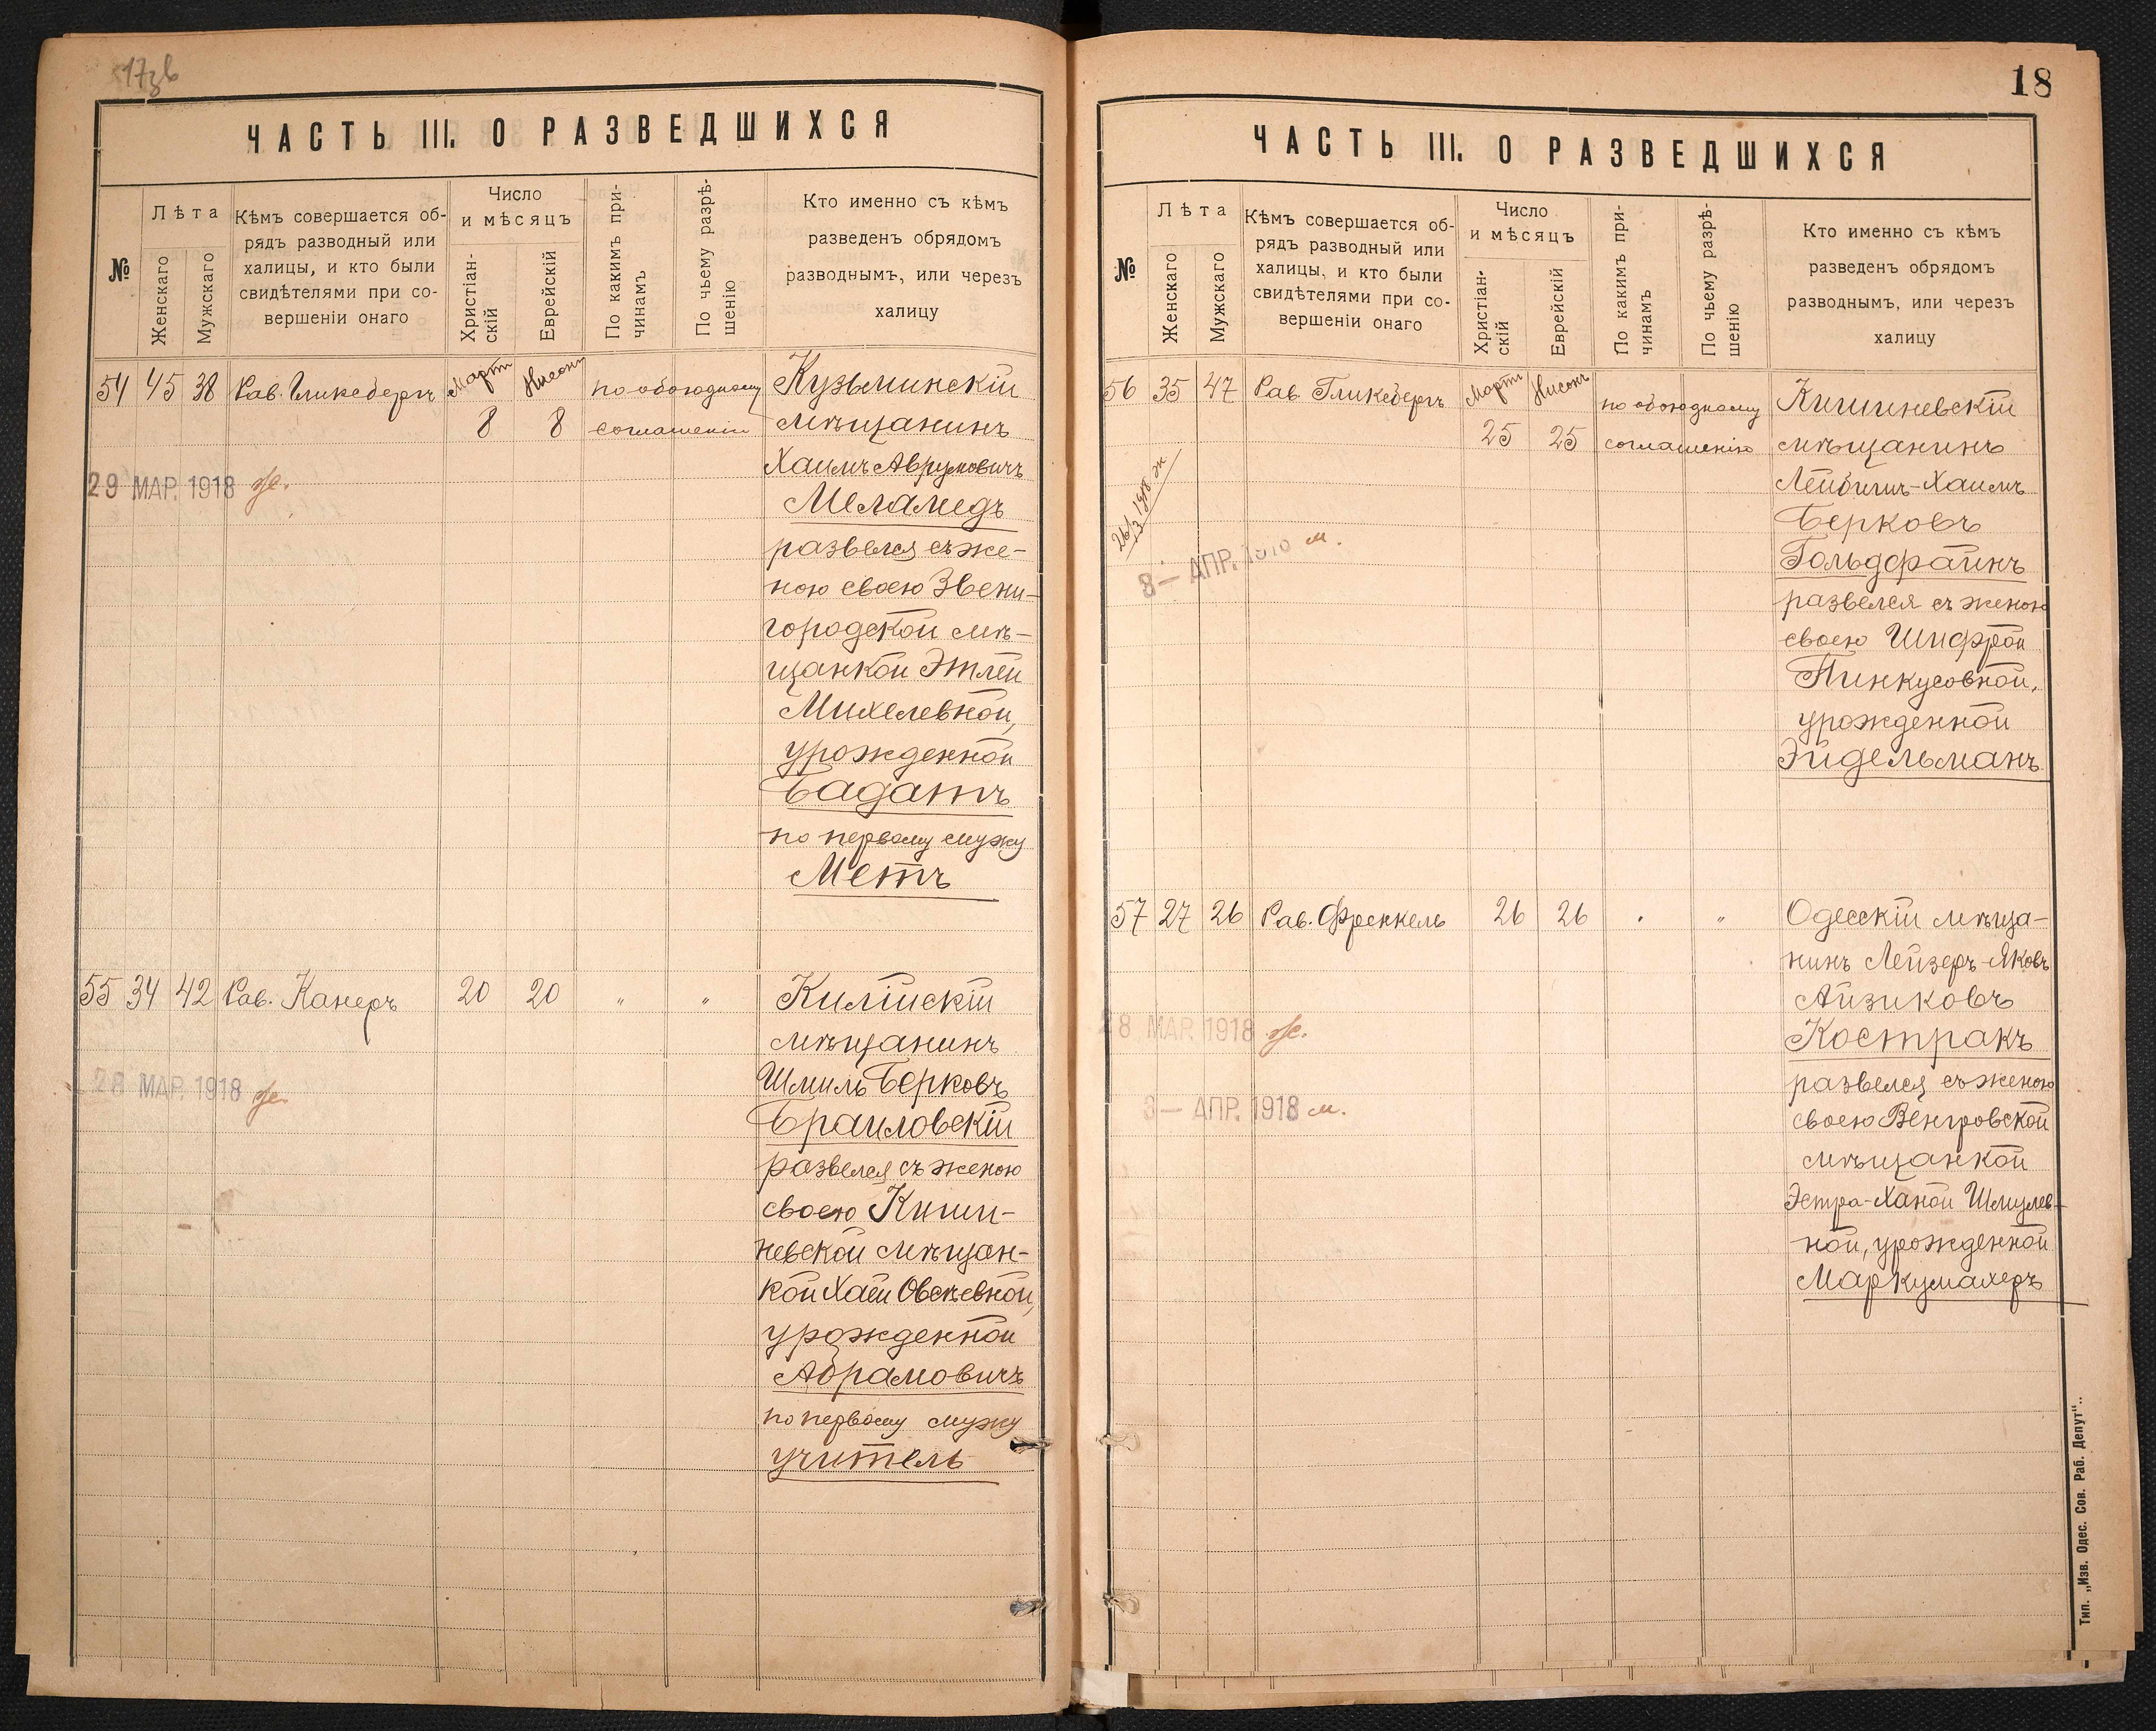 ЧАСТЬ III. О РАЗВЕДШИХСЯ
№
Лѣта
Женскаго
Мужскаго
Кѣмъ совершается об-
рядъ разводный или
халицы, и кто были
свидѣтелями при со-
вершеніи онаго
Число
и мѣсяцъ
Христіан-
скій
Еврейскій
По какимъ при-
чинамъ
По чьему разрѣ-
шенію
Кто именно съ кѣмъ
разведенъ обрядомъ
разводнымъ, или черезъ
халицу
54 45 38 Рав. Гликсбергъ Мартъ Нисонъ по обоюдному Кузьминскій
8 8 соглашенію мѣщанинъ
Хаимъ Аврумовичъ
29 МАР. 1918 ж.
Меламедъ
развелся съ же-
ною своею Звени-
городской мѣ-
щанкой Этлей
Михелевной,
урожденной
Бадатъ
по первому мужу
Метъ
55 34 42 Рав. Канеръ 20 20 " " Килійскій
мѣщанинъ
Шмиль Берковъ
28 МАР. 1918 ж.
Браиловскій
развелся съ женою
своею Киши-
невской мѣщан-
кой Хаей Овсѣевной,
урожденной
Абрамовичъ
по первому мужу
учитель
18
ЧАСТЬ III. О РАЗВЕДШИХСЯ
№
Лѣта
Женскаго
Мужскаго
Кѣмъ совершается об-
рядъ разводный или
халицы, и кто были
свидѣтелями при со-
вершеніи онаго
Число
и мѣсяцъ
Христіан-
скій
Еврейскій
По какимъ при-
чинамъ
По чьему разрѣ-
шенію
Кто именно съ кѣмъ
разведенъ обрядомъ
разводнымъ, или черезъ
халицу
56 35 47 Рав. Гликсбергъ Мартъ Нисонъ по обоюдному Кишиневскій
25 25 соглашенію мѣщанинъ
Лейбишъ-Хаимъ
26/3 1918 ж
Берковъ
8 — АПР. 1918 м.
Гольдфайнъ
развелся съ женою
своею Шифрой
Пинкусовной,
урожденной
Эйдельманъ
57 27 26 Рав. Френкель 26 26 " " Одесскій мѣща-
нинъ Лейзеръ-Яковъ
Айзиковъ
28 МАР. 1918 ж.
Костракъ
развелся съ женою
8 — АПР. 1918 м.
своею Венгровской
мѣщанкой
Эстра-Ханой Шмулев-
ной, урожденной
Тип. „Изв. Одес. Сов. Раб. Депут“.